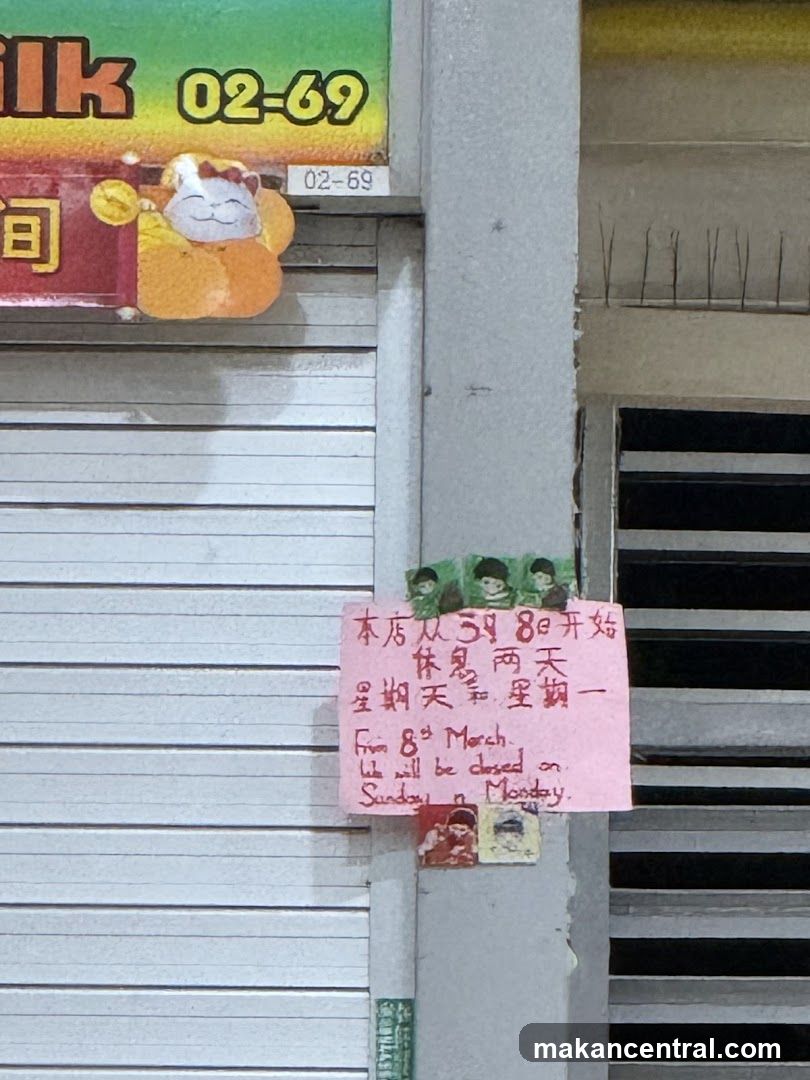 ilk 02-69
02-69
间
本店从3月8日开始
休息两天
星期天和星期一
From 8st March.
We will be closed on
Sunday n Monday.
makancentral.com